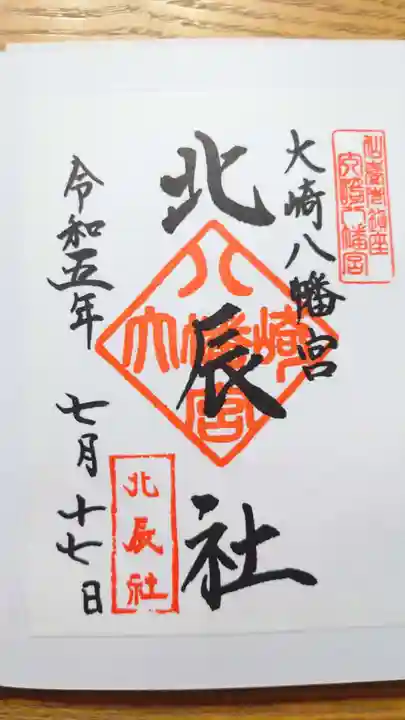 仙臺市鎮座
大崎八幡宮
大崎八幡宮
北辰社
大崎八幡宮
北辰社
令和五年
七月十七日